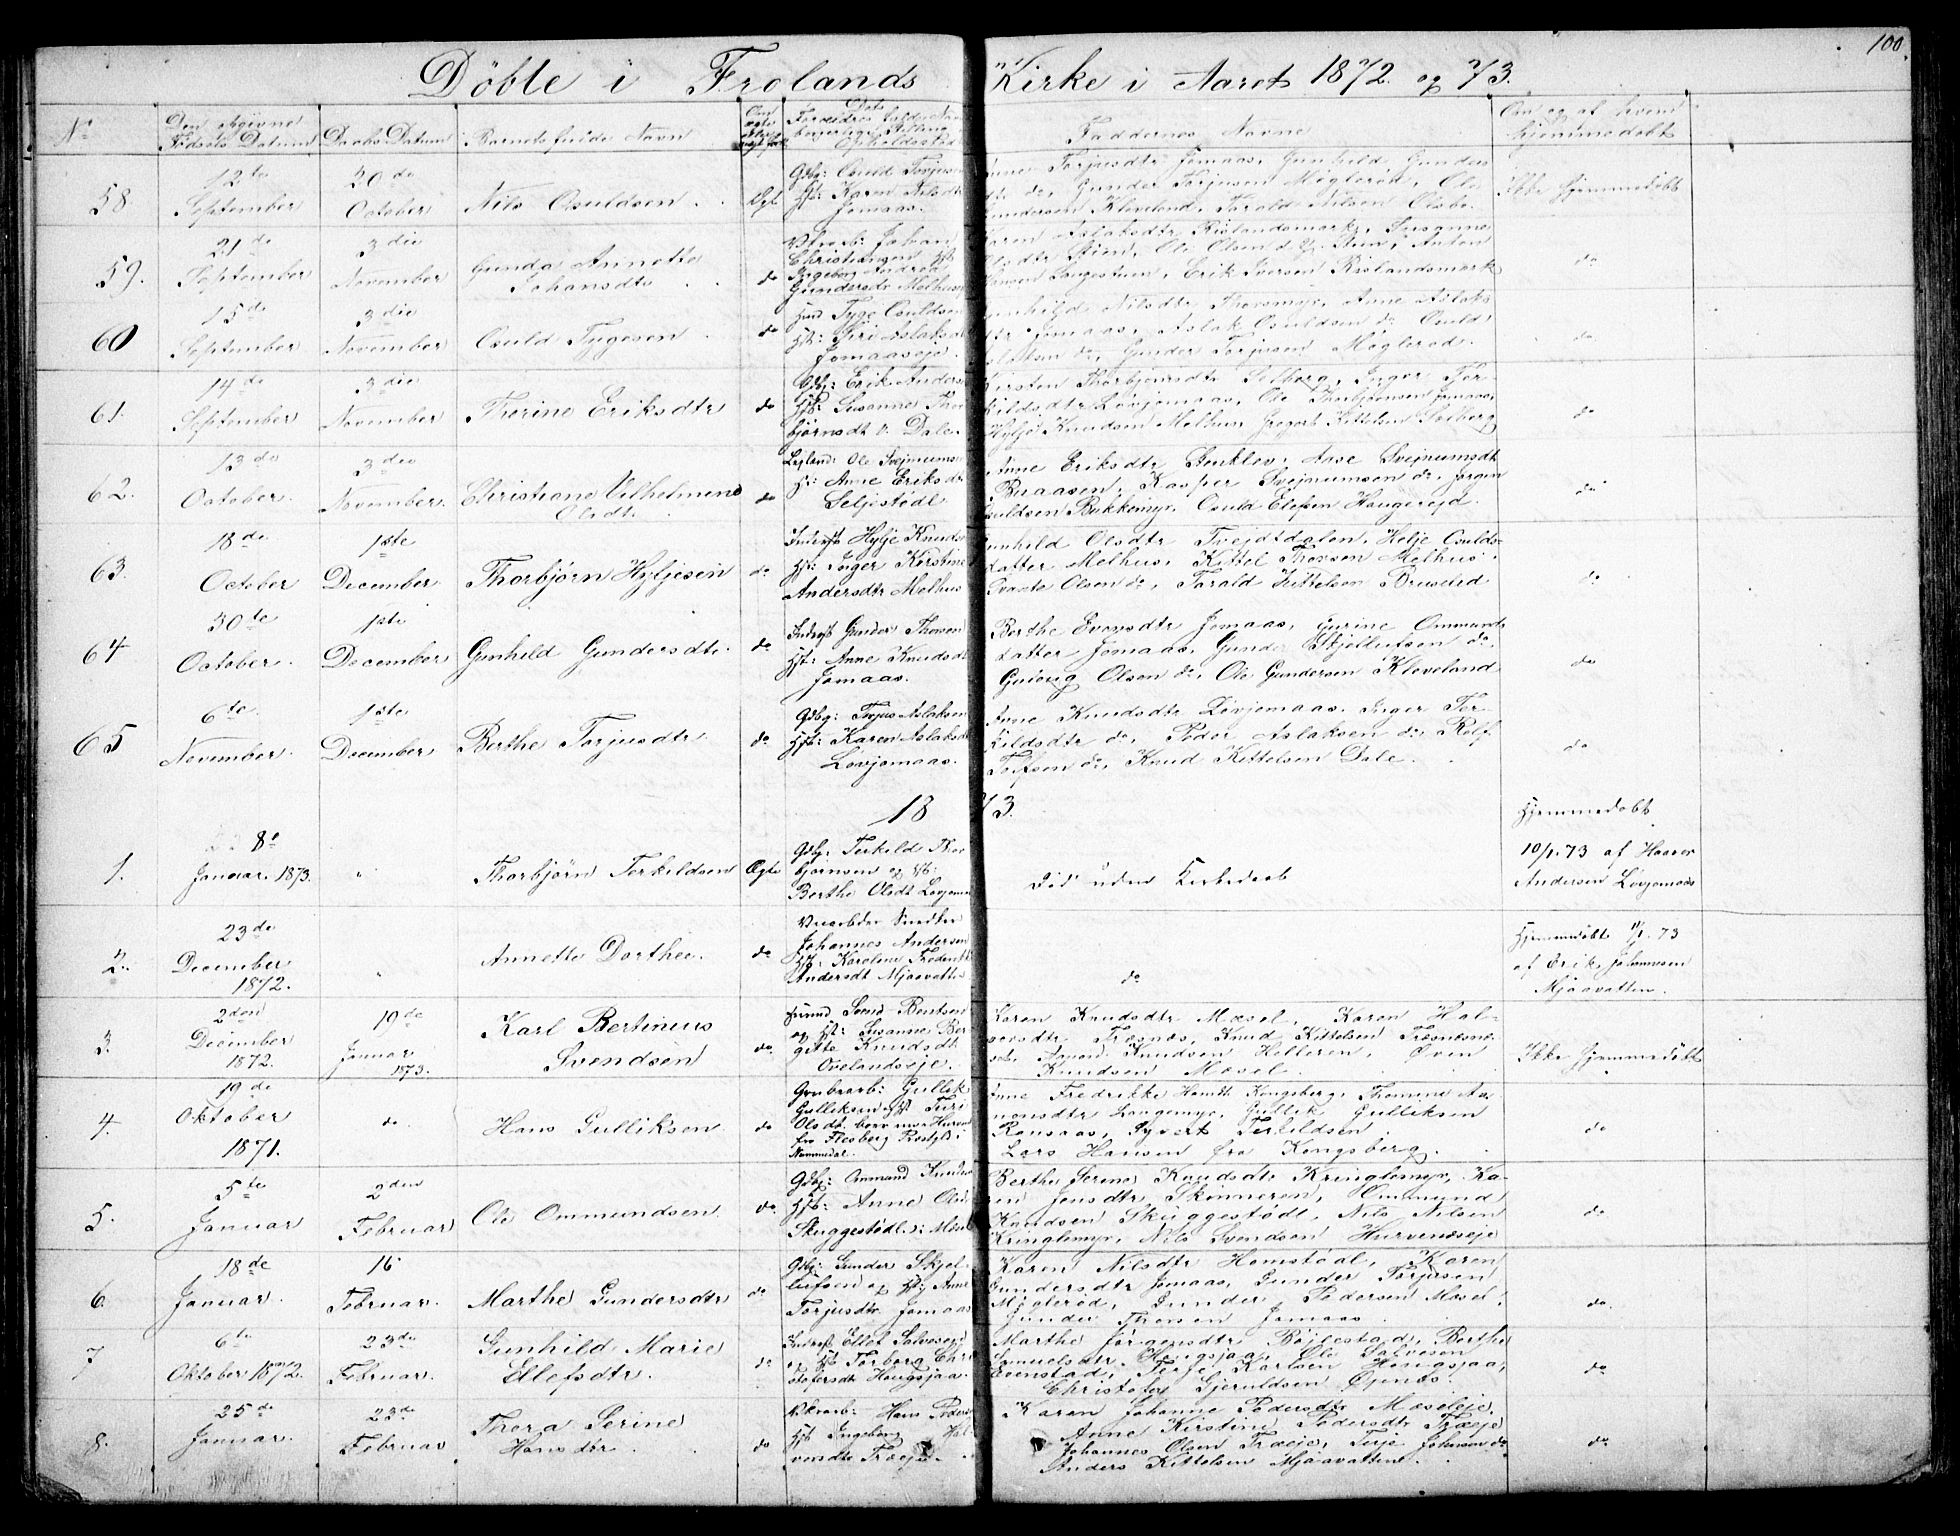 100.
Döbte i Frolands Kirke i Aaret 1872. og 73.
No
Den Agivne Fødsels Datum
Daabs Datum
Barnets fulde Navn
Faddernes Navne
Om og af hvem hjemmedøbt
58
12te September
20de October
Nils Osuldsen
Ægt
Gdbg: Osuld Torjusen
Hst: Karen Nilsdtr
Jomaas.
Torjusdtr Jomaas, Gunhild Gunders
dtr do, Gunder Torjusen Møglerød, Ole
Gundersen Kleveland, Tarald Nilsen Osebo
Ikke Hjemmedøbt
59.
21de September
3die November
Gunda Annette Johansdtr
do
Johan
Christiansen Hst
Ingeborg Andrea
Gundersdtr Melhus
Karen Aslaksdtr Rislandsmark, Susanne
Olsdtr Stien, Ole Olsen d. y. Stien, Anton
Hansen Langestuen, Erik Iversen Rislandsmark
do
60
15de September
3die November
Osuld Tygesen
do
Hmd Tyge Osuldsen
Hst: Siri Aslaksd
Jomaaseje.
Gunhild Nilsdtr Thorsmyr, Anne Aslaks
dtr Jomaas, Aslak Osuldsen do Osuld
Aslaksen do, Gunder Torjusen Møglerød.
do
61.
14de September
3die November
Thorine Eriksdtr
do
Gdbg: Erik Anders
Hst: Susanne Thor
bjørnsdt i Dale.
Kirsten Thorbjørnsdtr Solberg, Inger Ter-
kildsdtr Løvjomaas, Ole Thorbjørnsen Jomaas,
Hylje Knudsen Melhus, Gregert Kittelsen Solberg
do
62.
13de October.
3die November.
Christiane Vilhelmine Olsdt.
do
Ole Svejnumsen
H: Anne Eriksdtr
Seljestødl
Anne Eriksdtr Stenklev, Aase Svejnumsdt
Buaasen, Kasper Svejnumsen do, Jørgen
Osuldsen Bukkemyr, Osuld Elefsen Haugerejd.
do
63.
18de October
1ste December
Thorbjørn Hyljesen
do
Inderst Hylje Knudsen
Hst: Inger Kirstine
Andersdtr Melhus
Gunhild Olsdtr Tvejtdalen, Helje Osulds-
datter Melhus, Kittel Thorsen Melhus,
Svante Olsen do, Tarald Kittelsen Bruselid
do
64
30te October.
1ste December
Gunhild Gundersdtr.
do
Inderst Gunder Thorsen
Hst: Anne Knudsdt
Jomaas.
Berthe Evensdtr Jomaas, Gurine Ommunds
datter Jomaas, Gunder Skjellufsen do,
Guttorm Olsen do, Ole Gundersen Kleveland
do
65
6te November.
1ste December
Berthe Torjusdtr
do
Gdbg: Torjus Aslaksen
Hst: Karen Aslaksd
Løvjomaas.
Anne Knudsdtr Løvjomaas, Inger Ter-
kildsdtr do, Peder Aslaksen do, Rolf
Tolfsen do, Knud Kittelsen Dale.
do
1873.
1.
8de Januar. 1873.
"
Thorbjørn Terkildsen
Ægte
Gdbg: Terkild Thor
bjørnsen og Hst:
Berthe Olsdt Løvjomaas
Død uden Kirkedaab
Hjemmedøbt
10/1.73 af Haaver
Andersen Løvjomaas
2.
23de December 1872.
"
Annette Dorthee.
do
Johannes Andersen
Hst. Karoline Fredrikke
Andersdt Mjaavatten
do
Hjemmedøbt 1/1.73
af Erik Johannesen
Mjaavatten.
3.
2den December 1872.
19de Januar 1873.
Karl Bertinius Svendsen
do
Hmd Svend Bentsen
og Hst: Susanne Ber
gitte Knudsdt
Ovelandseje.
Karen Knudsdtr Mæsel, Karen Hal-
vorsdtr Træsnæs, Knud Kittelsen Træsnæs
Knudsen Helleren, Øven
Knudsen Mæsel.
Ikke Hjemmedøbt
4.
19de Oktober 1871.
do
Hans Gulliksen
do
Grubearb: Gullik
Gulliksen og Hst Turi
Olsdt
fra Flesberg Præstgld i
Nummedal.
Anne Fredrikke Hansdt Kongsberg, Thomine Aa-
nonsdtr Langemyr, Gullik Gulliksen
Ransaas, Syvert Terkildsen
Lars Hansen fra Kongsberg.
do
5.
5te Januar
2den Februar
Ole Ommundsen
do
Gdbg: Ommund Knudsen
Hst: Anne Olsd
Skuggestødl i Mæsel
Berthe Serine Knudsdtr Kringlemyr, Ka-
ren Jensdtr Skonneren, Ommund
Knudsen Skuggestødl, Nils Nilsen
Kringlemyr, Nils Svendsen Hurvenæseje
do
6.
18de Januar.
16 Februar.
Marthe Gundersdtr
do
Gdbg: Gunder Skjel-
lufsen og Hst Anne
Torjusdtr Jomaas
Karen Nilsdtr Homstødl, Karen
Gundersdtr Jomaas, Gunder Torjusen
Møglerød, Gunder Pedersen Mæsel,
Gunder Thorsen Jomaas.
do.
7
6te Oktober 1872.
23de Februar.
Gunhild Marie Ellefsdtr.
do
Inderst Ellef Salvesen
og Hst Torborg Chri
stofersdt Hougsjaa.
Marthe Jørgensdtr Bøjlestad, Berthe
Samuelsdtr Hougsjaa, Ole Salvesen
Evenstad, Terje Karlsen Hougsjaa,
Christofer Gjeruldsen Øynes.
do
8.
25de Januar.
23de Februar
Thora Serine Hansdtr
do
Hans Peders
Hst Ingeborg Hal
vorsdtr Træeje.
Karen Johanne Pedersdtr Mæseleje,
Anne Kirstine Pedersdtr Træeje
Johannes Olsen Træeje, Terje Johnsen do
Anders Kittelsen Mjaavatten.
do